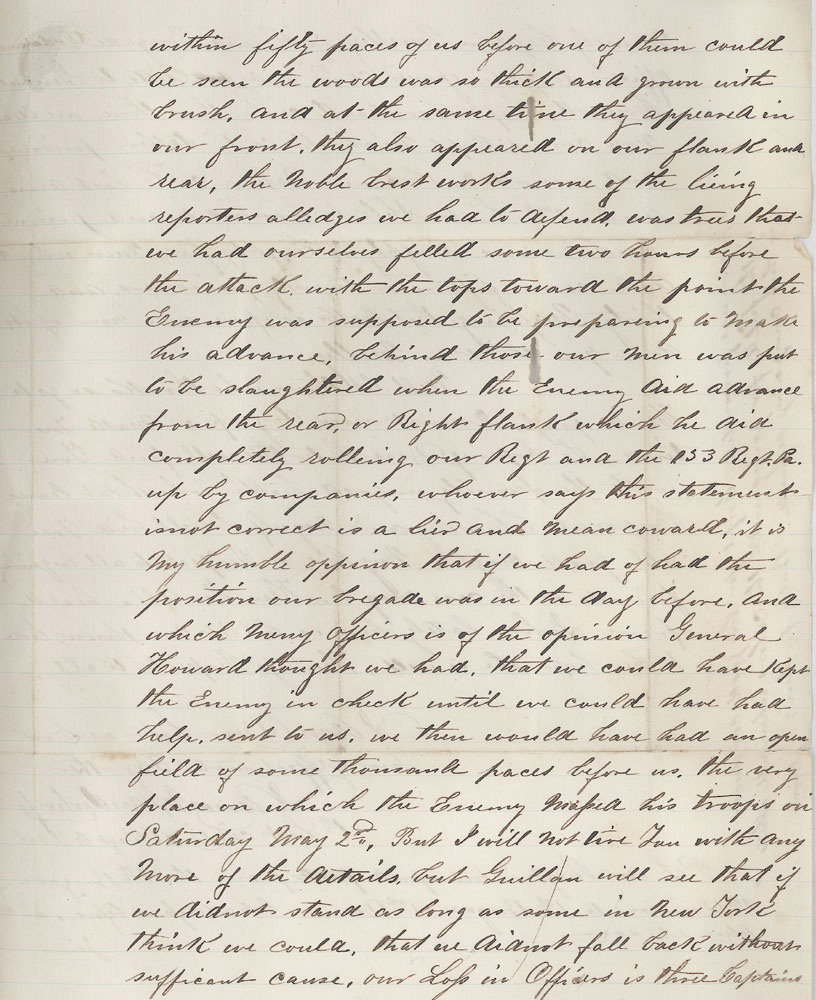 within fifty paces of us before one of them could
be seen the woods was so thick and grown with
brush, and at the same time they appeared in
our front, they also appeared on our flank and
rear, the Noble brest works some of the lieing
reporters alledges we had to defend, was trees that
we had ourselves felled some two hours before
the attack, with the tops toward the point the
Enemy was supposed to be prepareing to make
his advance, behind those our men was put
to be slaughtered when the Enemy did advance
from the rear, or Right flank which he did
completely rolleing our Regt and the 153 Regt. Pa.
up by companies, whoever says this statement
isnot correct is a lier and mean coward, it is
My humble oppinon that if we had of had the
position our bregade was in the day before, and
which meny officers is of the opinion General
Howard thought we had, that we could have kept
the Enemy in check until we could have had
help, sent to us, we then would have had an open
field of some thousand paces before us, the very
place on which the Enemy Massed his troops on
Saturday May 2nd, But I will not tire You with any
More of the details, but Guillan will see that if
we didnot stand as long as some in New York
think we could, that we didnot fall back without
sufficant cause, our Loss in Officers is three Captains